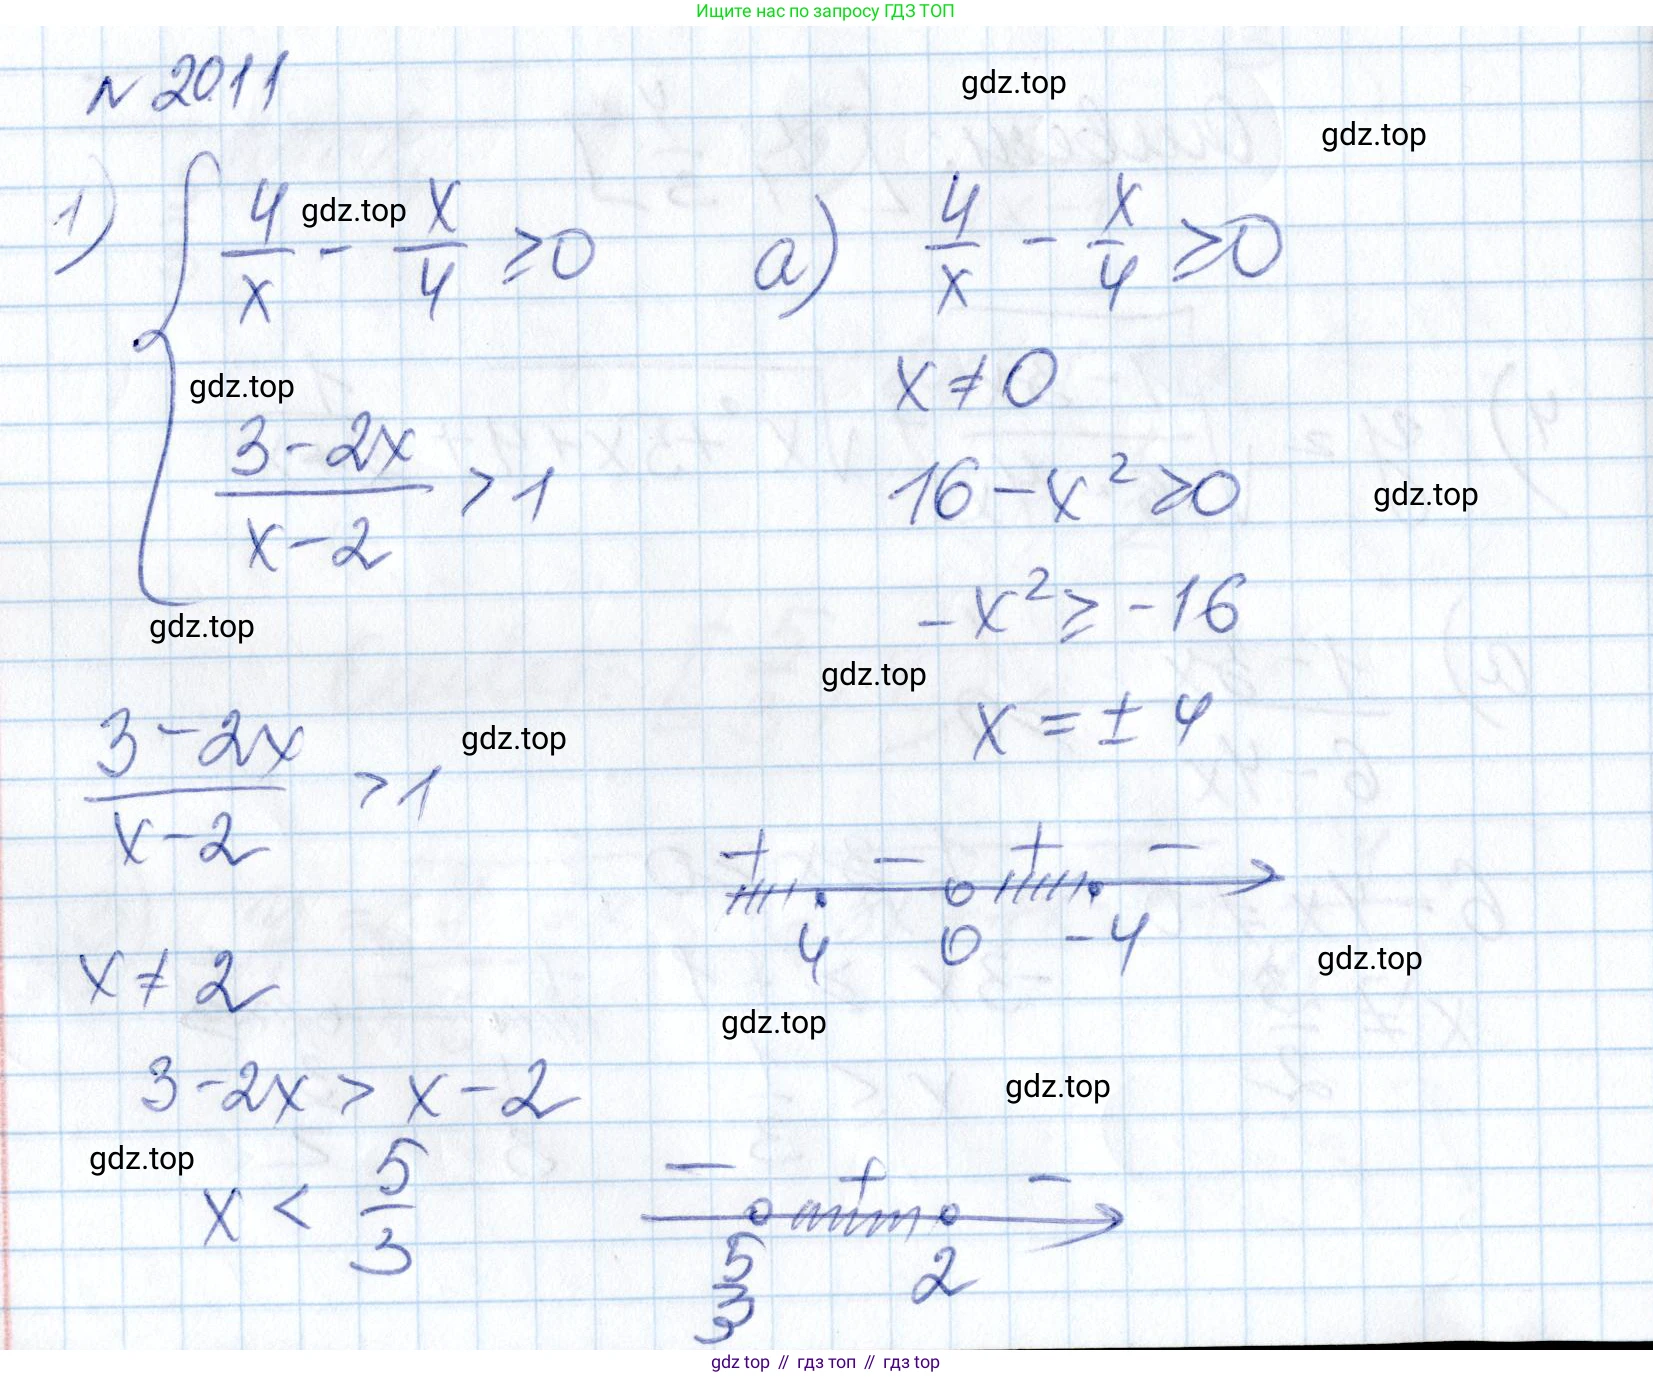 Ищите нас по запросу ГДЗ ТОП
N 2011
gdz.top
gdz.top
1) { 4/x - x/4 ≥ 0
gdz.top
а) 4/x - x/4 ≥ 0
gdz.top
x ≠ 0
(3-2x)/(x-2) > 1
16 - x² ≥ 0
gdz.top
gdz.top
-x² ≥ -16
gdz.top
x = ± 4
(3-2x)/(x-2) > 1
gdz.top
+ - + -
4 0 -4
x ≠ 2
gdz.top
gdz.top
3-2x > x-2
gdz.top
gdz.top
x < 5/3
- + -
5/3 2
gdz top // гдз топ // гдз top